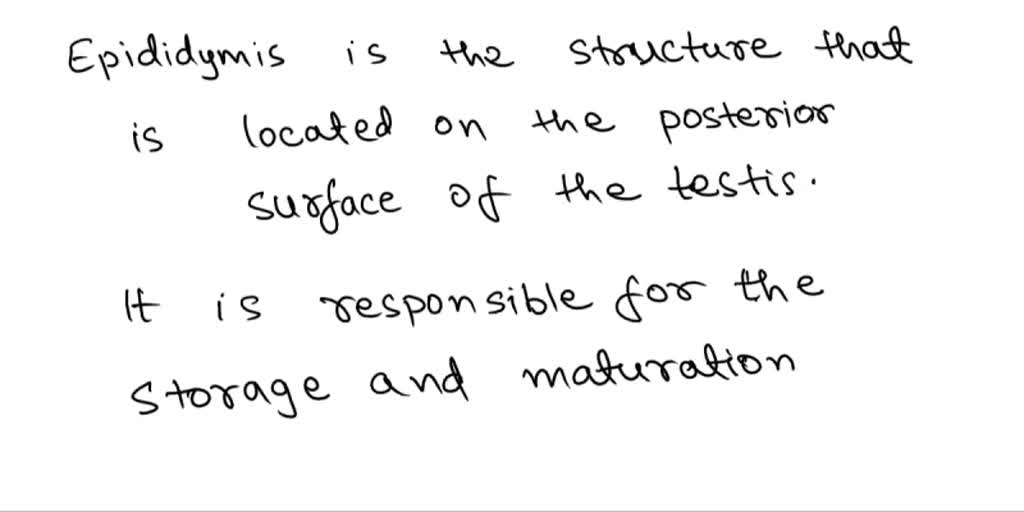 Epididymis is the structure that
is located on the posterior
surface of the testis.
It is responsible for the
storage and maturation